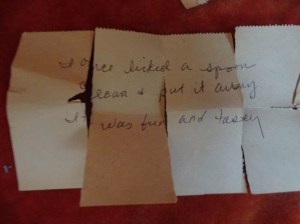 I once licked a spoon
clean & put it away
It was fun and tasey